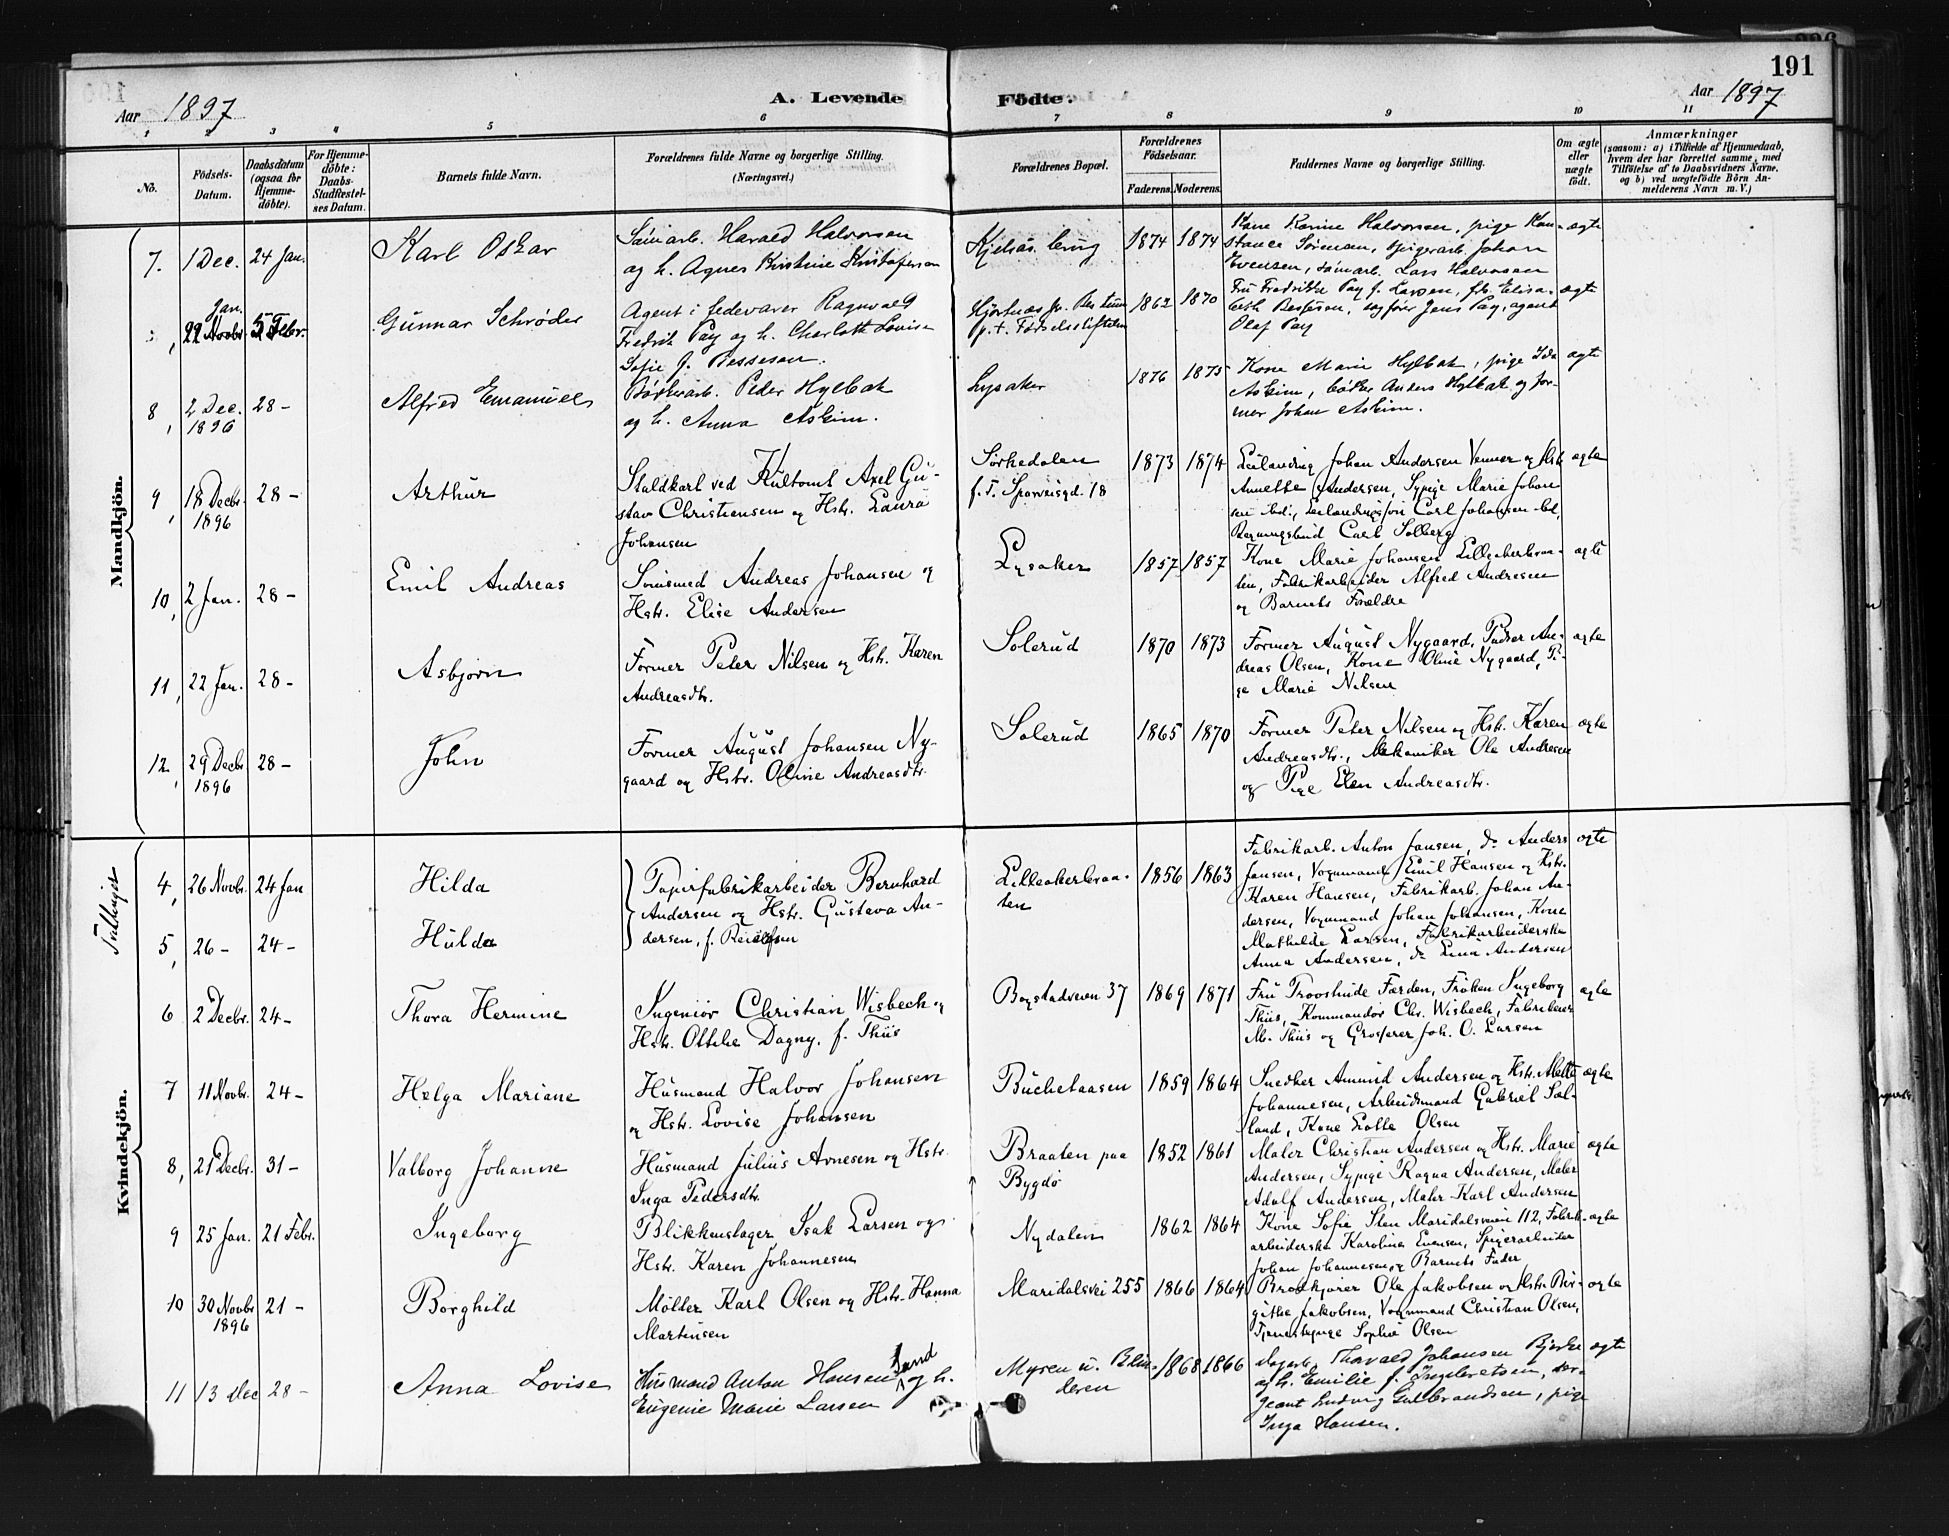 191
Aar 1897
A. Levende Fødte.
Aar 1897
1 2 3 4 5 6 7 8 9 10 11
No.
Fødsels-Datum.
Daabsdatum (ogsaa for Hjemme-døbte).
For Hjemme-døbte: Daabs-Stadfæstel-ses Datum.
Barnets fulde Navn.
Forældrenes fulde Navne og borgerlige Stilling. (Næringsvei.)
Forældrenes Bopæl.
Forældrenes Fødselsaar.
Faderens. Moderens.
Faddernes Navne og borgerlige Stilling.
Om ægte eller uægte født.
Anmærkninger
(saasom: a) i Tilfælde af Hjemmedaab, hvem der har forrettet samme, med Tilføielse af to Daabsvidners Navne, og b) ved uægtefødte Børn An-melderens Navn m. V.)
Mandkjøn.
7. 1 Dec. 24 Jan. Karl Oskar
Harald Halvorsen
og h. Agnes Kristine Kristofersen
Kjelsås brug 1874 1874
Kone Karine Halvorsen, pige Kon-
stance Sørensen, spigerarb. Johan
Evensen, sömarb. Lars Halvorsen
ægte
Jan.
22 Novbr. 5 Febr. Gunnar Schrøder
Agent i fedevarer Ragnvald
Fredrik Pay og h. Charlotte Lovise
Sofie f. Bessesen.
p.t. Fødselsstiftelsen
1862 1870
Fru Fredrikke Pay f. Larsen, frk. Elisa-
beth Bessesen, Jens Pay, agent
Olaf Pay
ægte
8, 2 Dec. 1896 28 - Alfred Emanuel
Peder Hylbak
og h. Anna Askim.
Lysaker 1876 1875
Kone Marie Hylbak, pige Ida
Askim, bøtker Anders Hylbak og for-
mer Johan Askim.
ægte
9, 18 Decbr. 1896 28 - Arthur
Staldkarl ved Kultomt Axel Gu-
stav Christiansen og Hstr. Laura
Johansen
Sørkedalen
f. T. Sporveisgd. 18
1873 1874
Johan Andersen og Hstr.
Annette Andersen, Sypige Marie Johan
sen Carl Johansen
Carl Solberg
ægte
10, 2 Jan. 28 - Emil Andreas
Andreas Johansen og
Hstr. Elise Andersen
Lysaker 1857 1857
Kone Marie Johansen Lilleakerbraa-
ten, Fabrikarbeider Alfred Andresen
og Barnets Forældre
ægte
11, 22 Jan. 28 - Asbjørn
Former Peter Nilsen og Hstr. Karen
Andreasdtr.
Solerud 1870 1873
Former August Nygaard, Pudser An-
dreas Olsen, Kone Oline Nygaard, Pi-
ge Marie Nilsen
ægte
12, 29 Decbr. 1896 28 - John
Former August Johansen Ny-
gaard og Hstr. Oline Andreasdtr.
Solerud 1865 1870
Former Peter Nilsen og Hstr. Karen
Andreasdtr., Mekaniker Ole Andresen
og Pige Elen Andreasdtr.
ægte
Kvindekjøn.
4, 26 Novbr. 24 Jan Hilda
5, 26 - 24 - Hulda
Papirfabrikarbeider Bernhard
Andersen og Hstr. Gustava An-
dersen, f.
Lilleakerbraa-
ten
1856 1863
Fabrikarb. Anton Jansen, do Anders
Jansen, Vognmand Emil Hansen og Hstr.
Karen Hansen, Fabrikarb. Johan An-
dersen, Vognmand Johan Johansen, Kone
Mathilde Larsen, Fabrikarbeiderske
Anna Andersen, do Lina Andersen
ægte
6 2 Decbr. 24 - Thora Hermine
Ingeniør Christian Wisbech og
Hstr. Ottilie Dagny, f. Thiis
Bogstadveien 37 1869 1871
Fru Færden, Frøken Ingeborg
Thiis, Kommandør Chr. Wisbech, Fabrikeier
M. Thiis og Grosserer Joh. O. Larsen
ægte
7 11 Novbr. 24 - Helga Mariane
Husmand Halvor Johansen
og Hstr. Lovise Johansen
Büchelaasen 1859 1864
Snedker Amund Andersen og Hstr. Mette
Johannesen, Arbeidsmand Gabriel Sæl-
land, Kone Olsen
ægte
8, 21 Decbr. 31 - Valborg Johanne
Husmand Julius Arnesen og Hstr.
Inga Pedersdtr.
Braaten paa
Bygdø
1852 1861
Maler Christian Andersen og Hstr. Marie
Andersen, Sypige Ragna Andersen, Maler
Adolf Andersen, Maler Karl Andersen
ægte
9 25 Jan. 21 Febr. Ingeborg
Blikkenslager Isak Larsen og
Hstr. Karen Johannesen
Nydalen 1862 1864
Kone Sofie Sten Maridalsveien 112, Fabrik-
arbeiderske Karoline Evensen, Spigerarbeider
Johan Johannesen og Barnets Fader
ægte
10 30 Novbr 1896 21 - Borghild
Møller Karl Olsen og Hstr. Hanna
Martinsen
Maridalsvei 255 1866 1864
Brødkjører Ole Jakobsen og Hstr. Bir-
githe Jakobsen, Vognmand Christian Olsen,
Tjenestepige Sophie Olsen
ægte
11 13 dec 28 - Anna Lovise
Husmand Anton Hansen Sand og h.
Eugenie Marie Larsen
Myren u. Blin-
dern
1868 1866
Dagarb. Thorvald Johansen Bjerke
og h. Emilie f. Ingebretsen, ser-
geant Ludvig Gulbrandsen, pige
Inga Hansen.
ægte